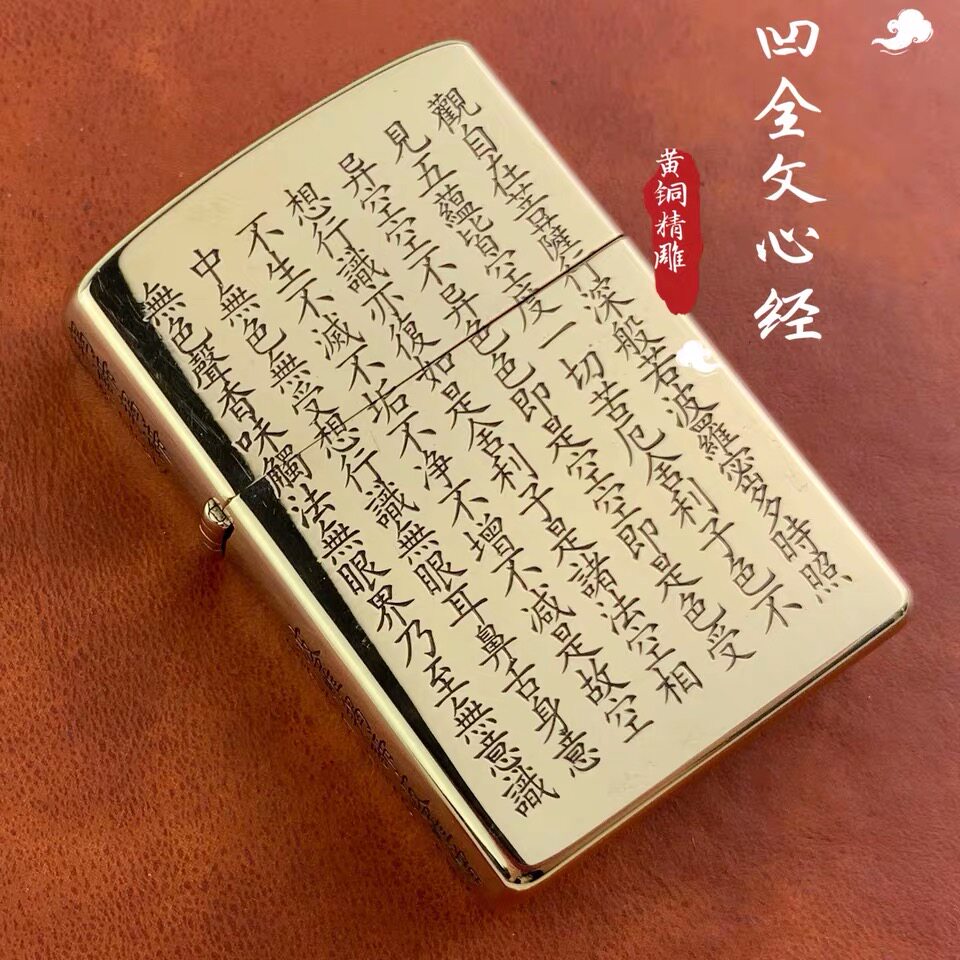 凹全文心经
黄铜精雕
觀自在菩薩行深般若波羅密多時照
見五蘊皆空度一切苦厄舍利子色不
异空空不异色色即是空空即是色受
想行識亦復如是舍利子是諸法空相
不生不滅不垢不净不增不减是故空
中無色無受想行識無眼耳鼻舌身意
無色聲香味觸法無眼界乃至無意識